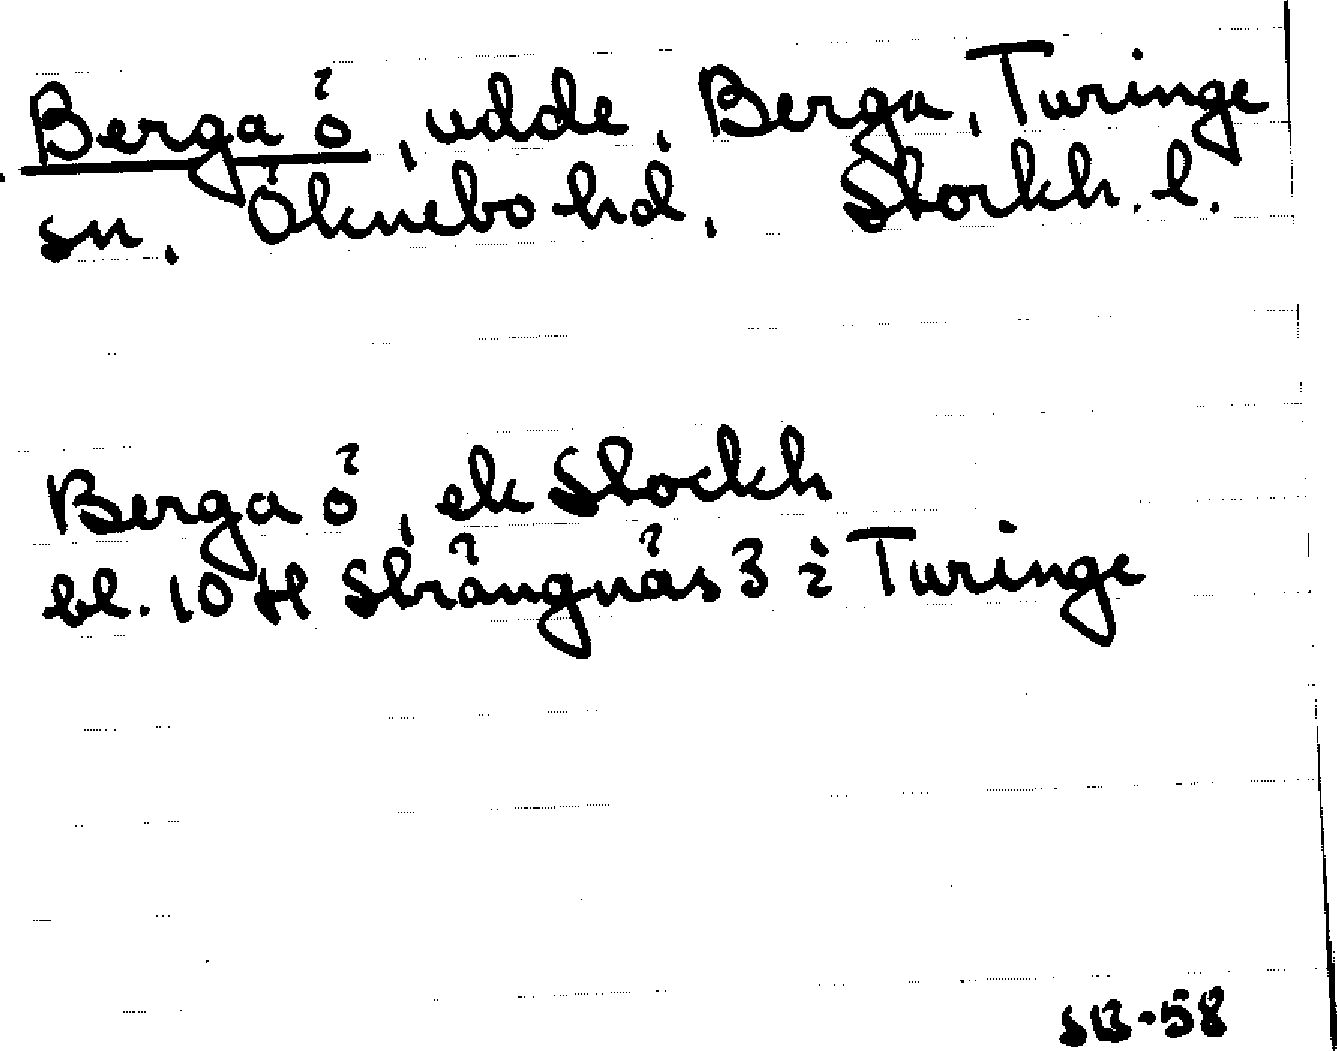 Berga ö, udde, Berga, Turinge
sn, Öknebo hd, Stockh. l.
Berga ö, ek Stockh
bl. 10 H Strängnäs 3 i Turinge
SB-58